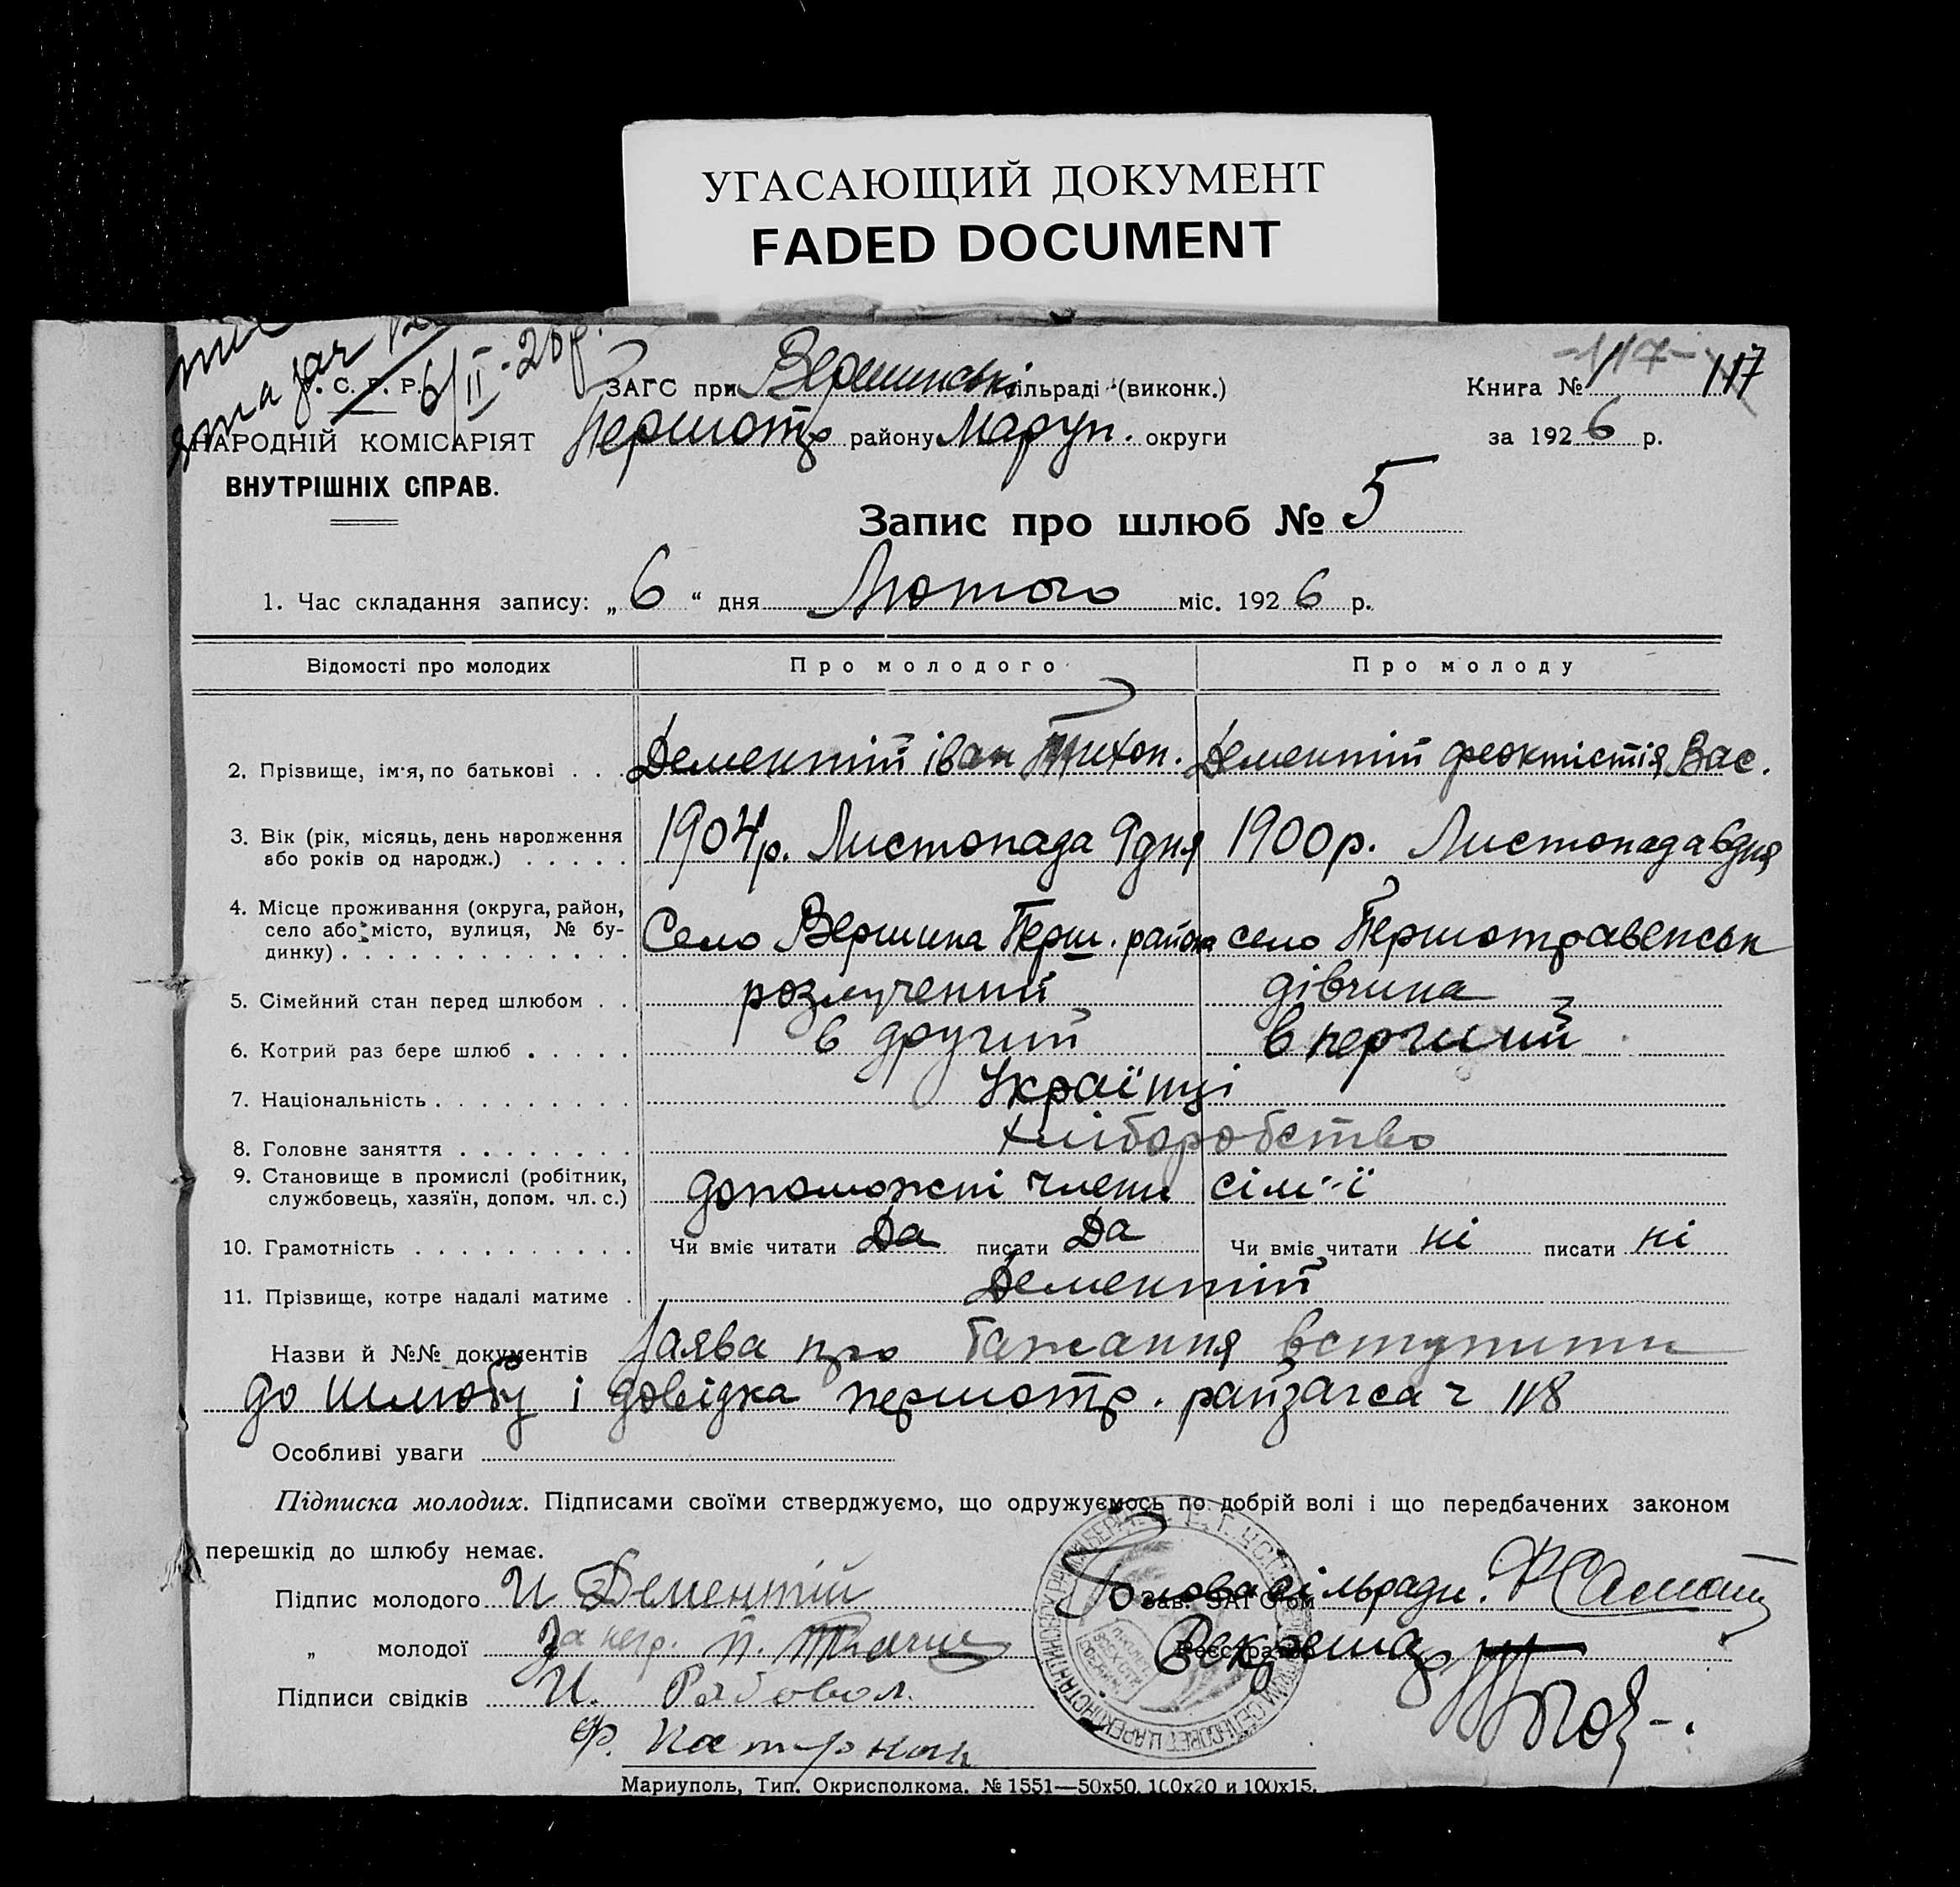 УГАСАЮЩИЙ ДОКУМЕНТ
FADED DOCUMENT
6/II-26р.
С. Р. Р.
ЗАГС при Вершинській сільраді (виконк.)
Книга № 117
НАРОДНІЙ КОМІСАРІЯТ
Першотр району Маруп. округи
за 1926 р.
ВНУТРІШНІХ СПРАВ.
Запис про шлюб № 5
1. Час складання запису: „6“ дня Лютого міс. 1926 р.
Відомості про молодих Про молодого Про молоду
2. Прізвище, ім'я, по батькові . . . Дементій іван Тихон. Дементій феоктістія Вас.
3. Вік (рік, місяць, день народження
або років од народж.) . . . . . 1904р. Листопада 9 дня 1900р. Листопада 6 дня
4. Місце проживання (округа, район,
село або місто, вулиця, № бу-
динку) . . . . . . . . . . . . . Село Вершина Перш. района село Першотравенськ
5. Сімейний стан перед шлюбом . . розлучений дівчина
6. Котрий раз бере шлюб . . . . . в другий в перчший
7. Національність . . . . . . . . . Українці
8. Головне заняття . . . . . . . . хліборобство
9. Становище в промислі (робітник,
службовець, хазяїн, допом. чл. с.) допоможні члени сім"ї
10. Грамотність . . . . . . . . . . Чи вміє читати Да писати Да Чи вміє читати ні писати ні
11. Прізвище, котре надалі матиме . Дементій
Назви й №№ документів Заява про бажання вступити
до шлюбу і довідка першотр. райзагса ч 118
Особливі уваги
Підписка молодих. Підписами своїми стверджуємо, що одружуємось по добрій волі і що передбачених законом
перешкід до шлюбу немає.
Підпис молодого И Дементій
Зав. ЗАГС'ом Голова сільради.
„ молодої За негр. П.
Реєстратор Секретар
Підписи свідків И. Рабовол.
Ф.
Мариуполь, Тип. Окрисполкома. № 1551—50х50, 100х20 и 100х15.